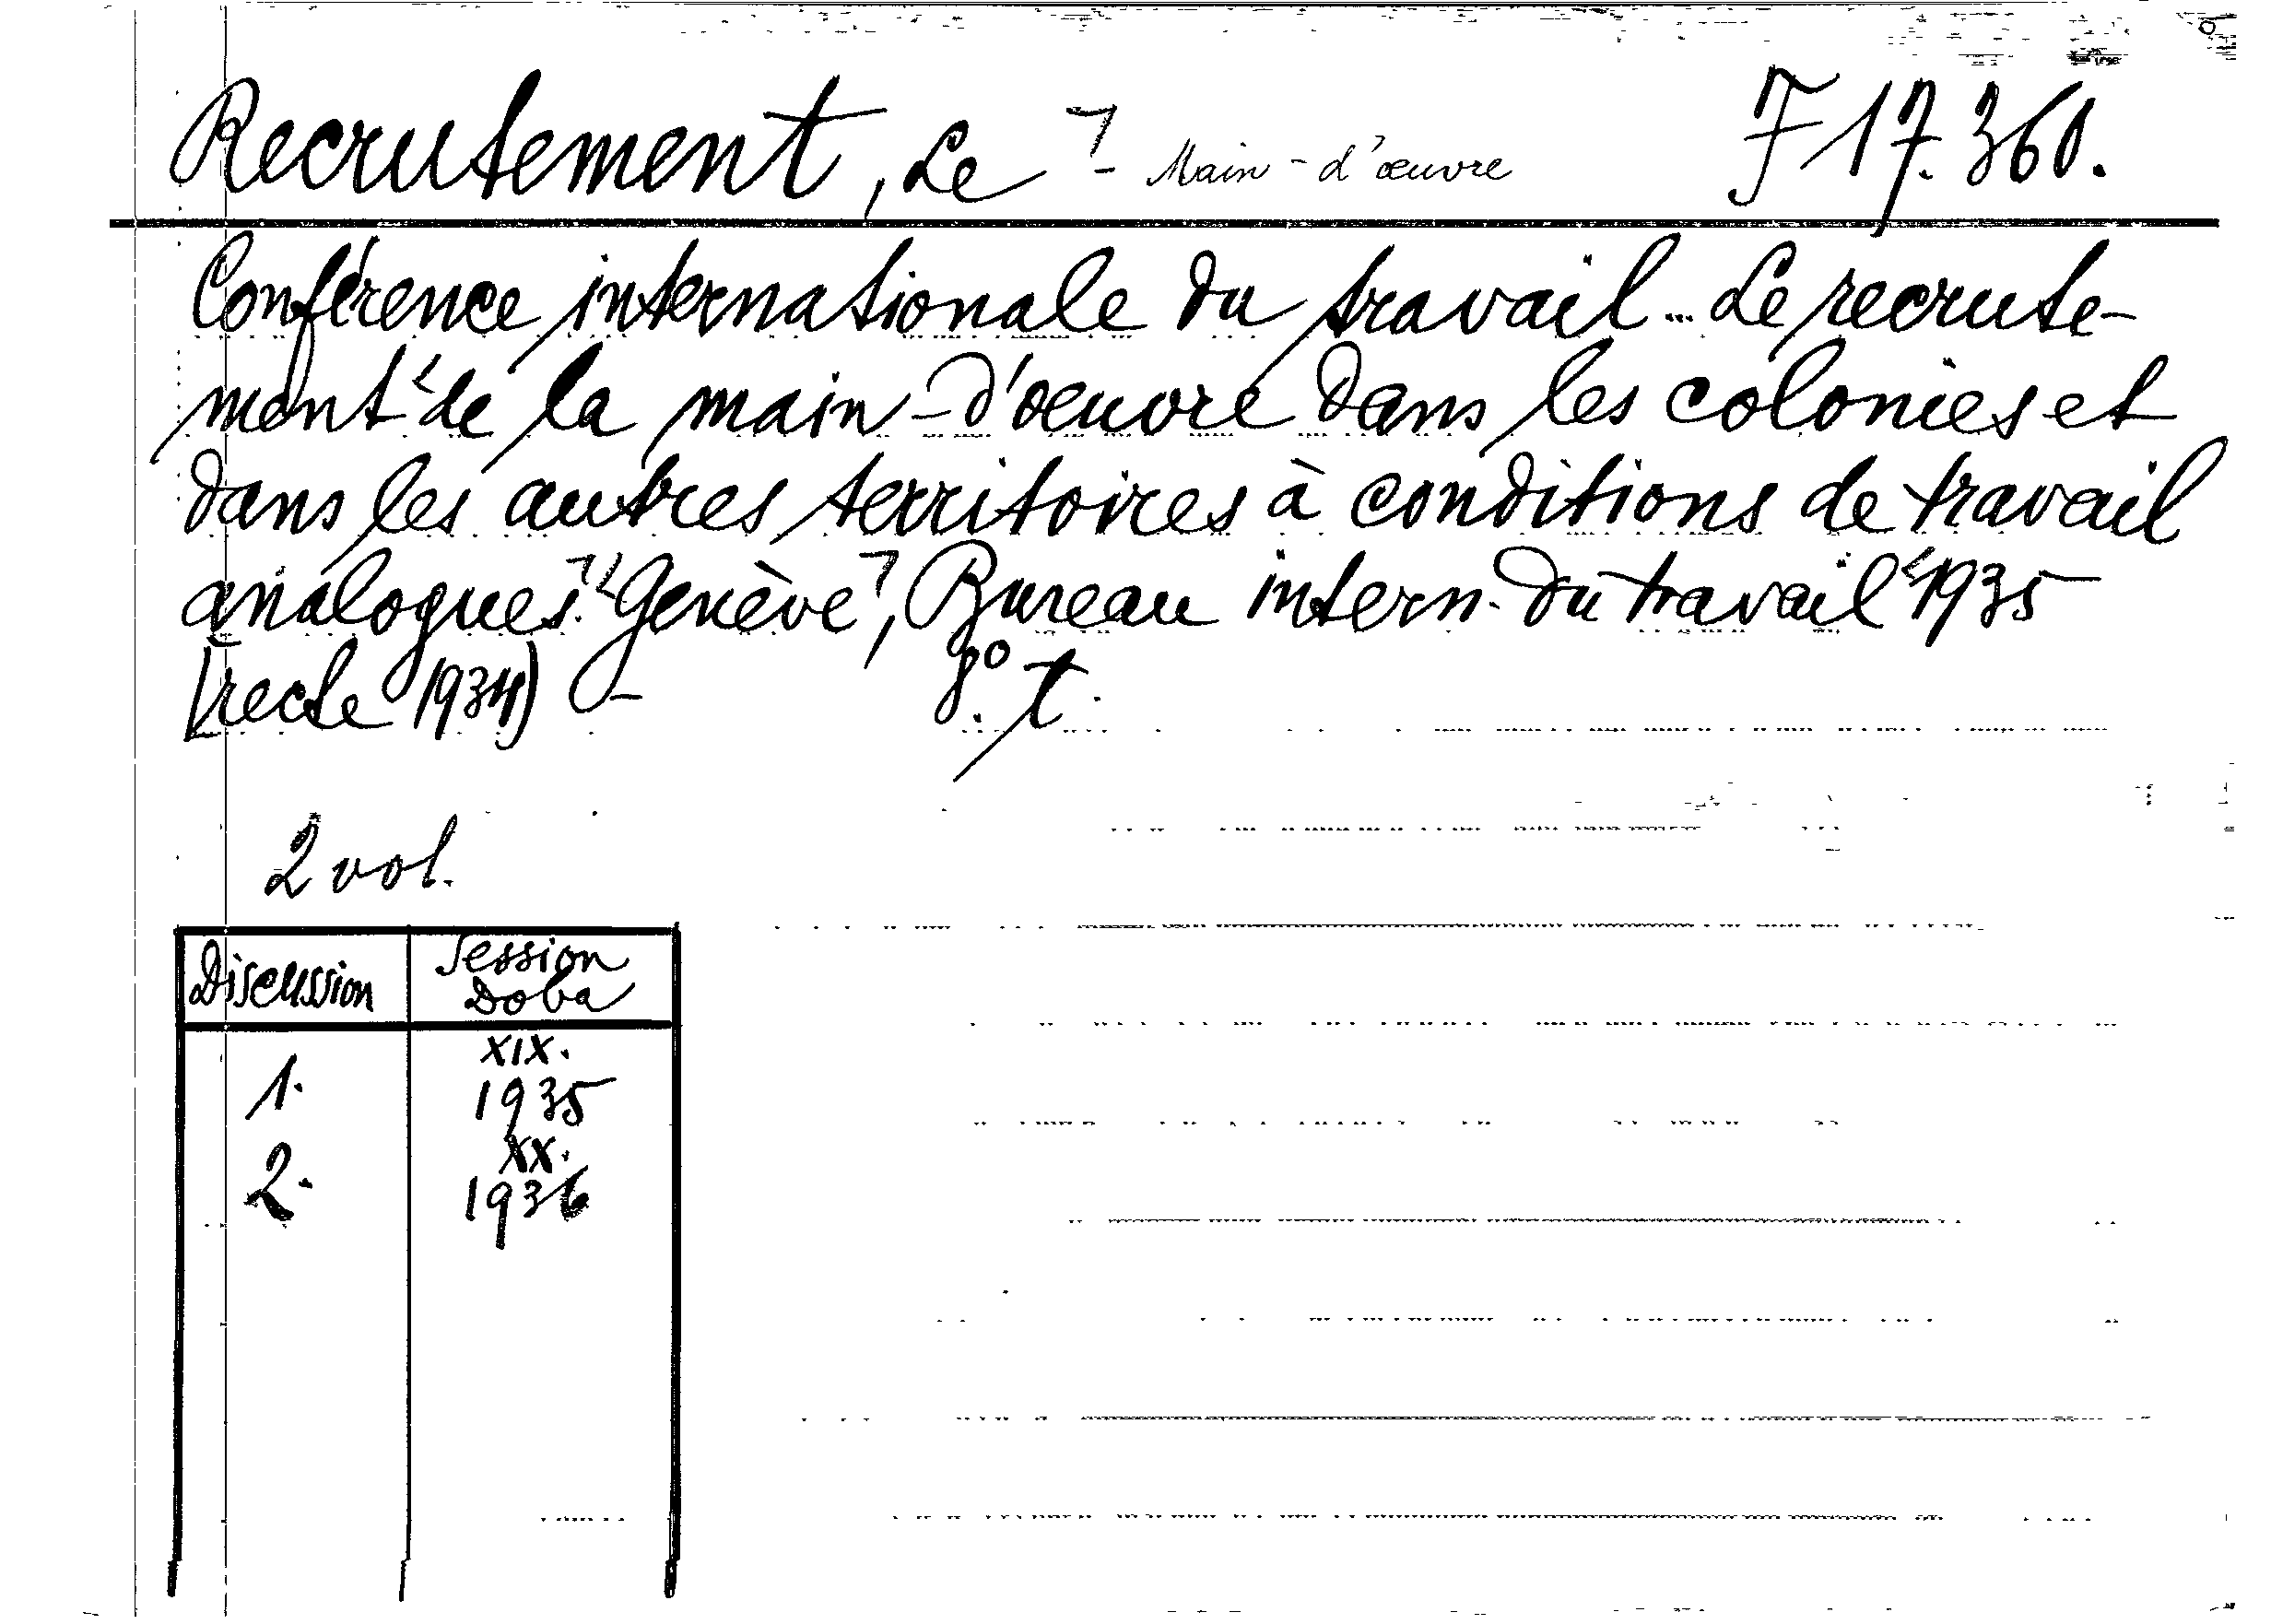 Recrutement, Le - Main-d'œuvre F 17.360.
Conférence internationale du travail... Le recrute-
ment de la main-d'œuvre dans les colonies et
dans les autres territoires à conditions de travail
analogues. Genève, Bureau intern. du travail 1935
[recte 1934) - 8° t.
2 vol.
Discussion Session
Doba
1. XIX.
1935
2. XX.
1936